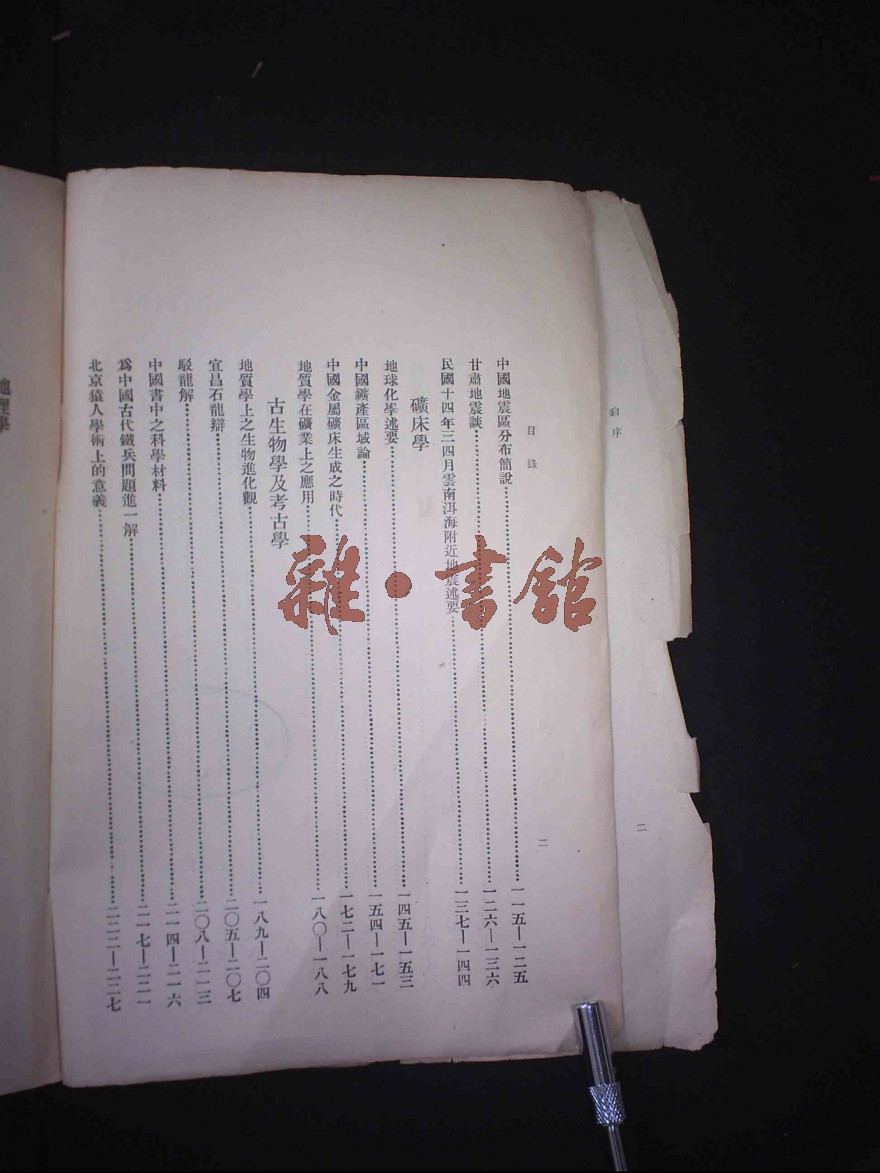 自序
二
目錄
二
中國地震區分布簡說……一一五—一二五
甘肅地震談……一二六—一三六
民國十四年三四月雲南洱海附近地震述要……一三七—一四四
礦床學
地球化學述要……一四五—一五三
中國礦產區域論……一五四—一七一
中國金屬礦床生成之時代……一七二—一七九
地質學在礦業上之應用……一八〇—一八八
古生物學及考古學
地質學上之生物進化觀……一八九—二〇四
宜昌石龍辯……二〇五—二〇七
駁龍解……二〇八—二一三
中國書中之科學材料……二一四—二一六
為中國古代鐵兵問題進一解……二一七—二二一
北京猿人學術上的意義……二二二—二二七
地理學
雜·書館